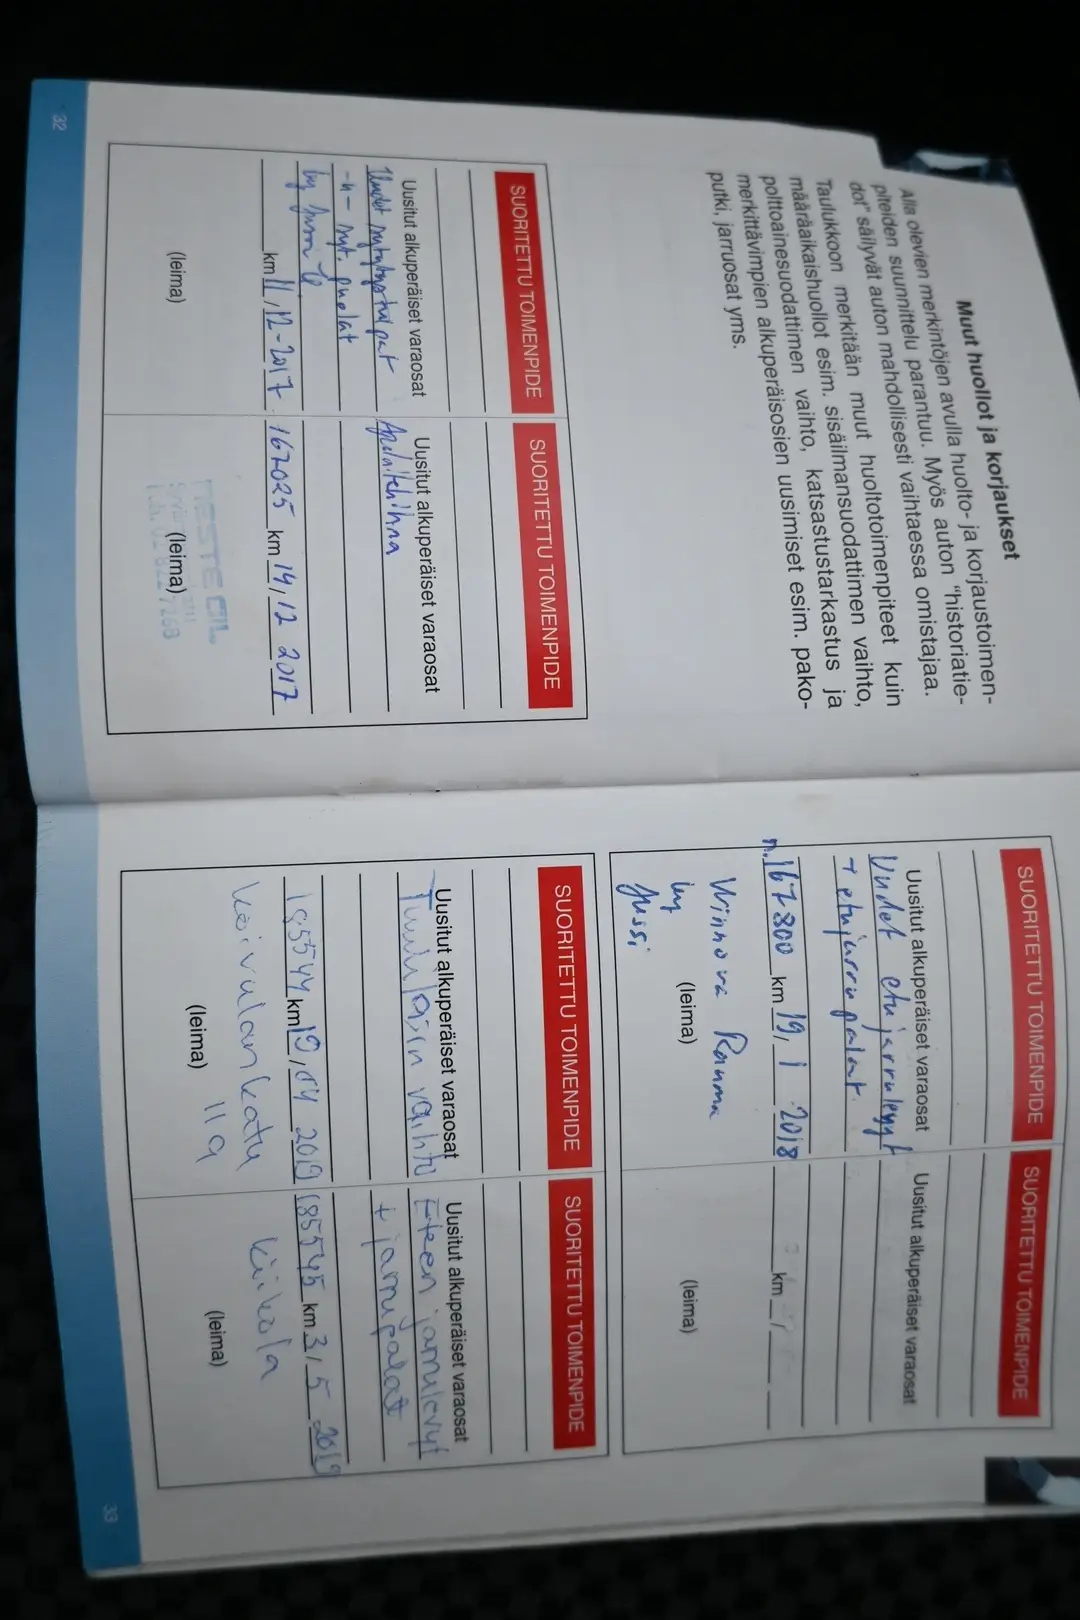 Muut huollot ja korjaukset
Alla olevien merkintöjen avulla huolto- ja korjaustoimen-
piteiden suunnittelu parantuu. Myös auton "historiatie-
dot" säilyvät auton mahdollisesti vaihtaessa omistajaa.
Taulukkoon merkitään muut huoltotoimenpiteet kuin
määräaikaishuollot esim. sisäilmansuodattimen vaihto,
polttoainesuodattimen vaihto, katsastustarkastus ja
merkittävimpien alkuperäisosien uusimiset esim. pako-
putki, jarruosat yms.
SUORITETTU TOIMENPIDE
Uusitut alkuperäiset varaosat
Uudet sytytystulpat
-"- syt. puolat
by
km 11, 12-2017
(leima)
SUORITETTU TOIMENPIDE
Uusitut alkuperäiset varaosat
Apulaitehihna
167025 km 14, 12 2017
NESTE OIL
(leima)
32
SUORITETTU TOIMENPIDE
Uusitut alkuperäiset varaosat
Uudet etujarrulevyt
+ etujarrupalat.
n. 167800 km 19, 1 2018
Winnova Rauma
by
Jussi
(leima)
SUORITETTU TOIMENPIDE
Uusitut alkuperäiset varaosat
km
(leima)
SUORITETTU TOIMENPIDE
Uusitut alkuperäiset varaosat
Tuulilasin vaihto
185544 km 19, 04 2019
Koivulankatu
11 a
(leima)
SUORITETTU TOIMENPIDE
Uusitut alkuperäiset varaosat
Eteen jarrulevyt
+ jarrupalat
185545 km 3, 5 2019
Kiikola
(leima)
33